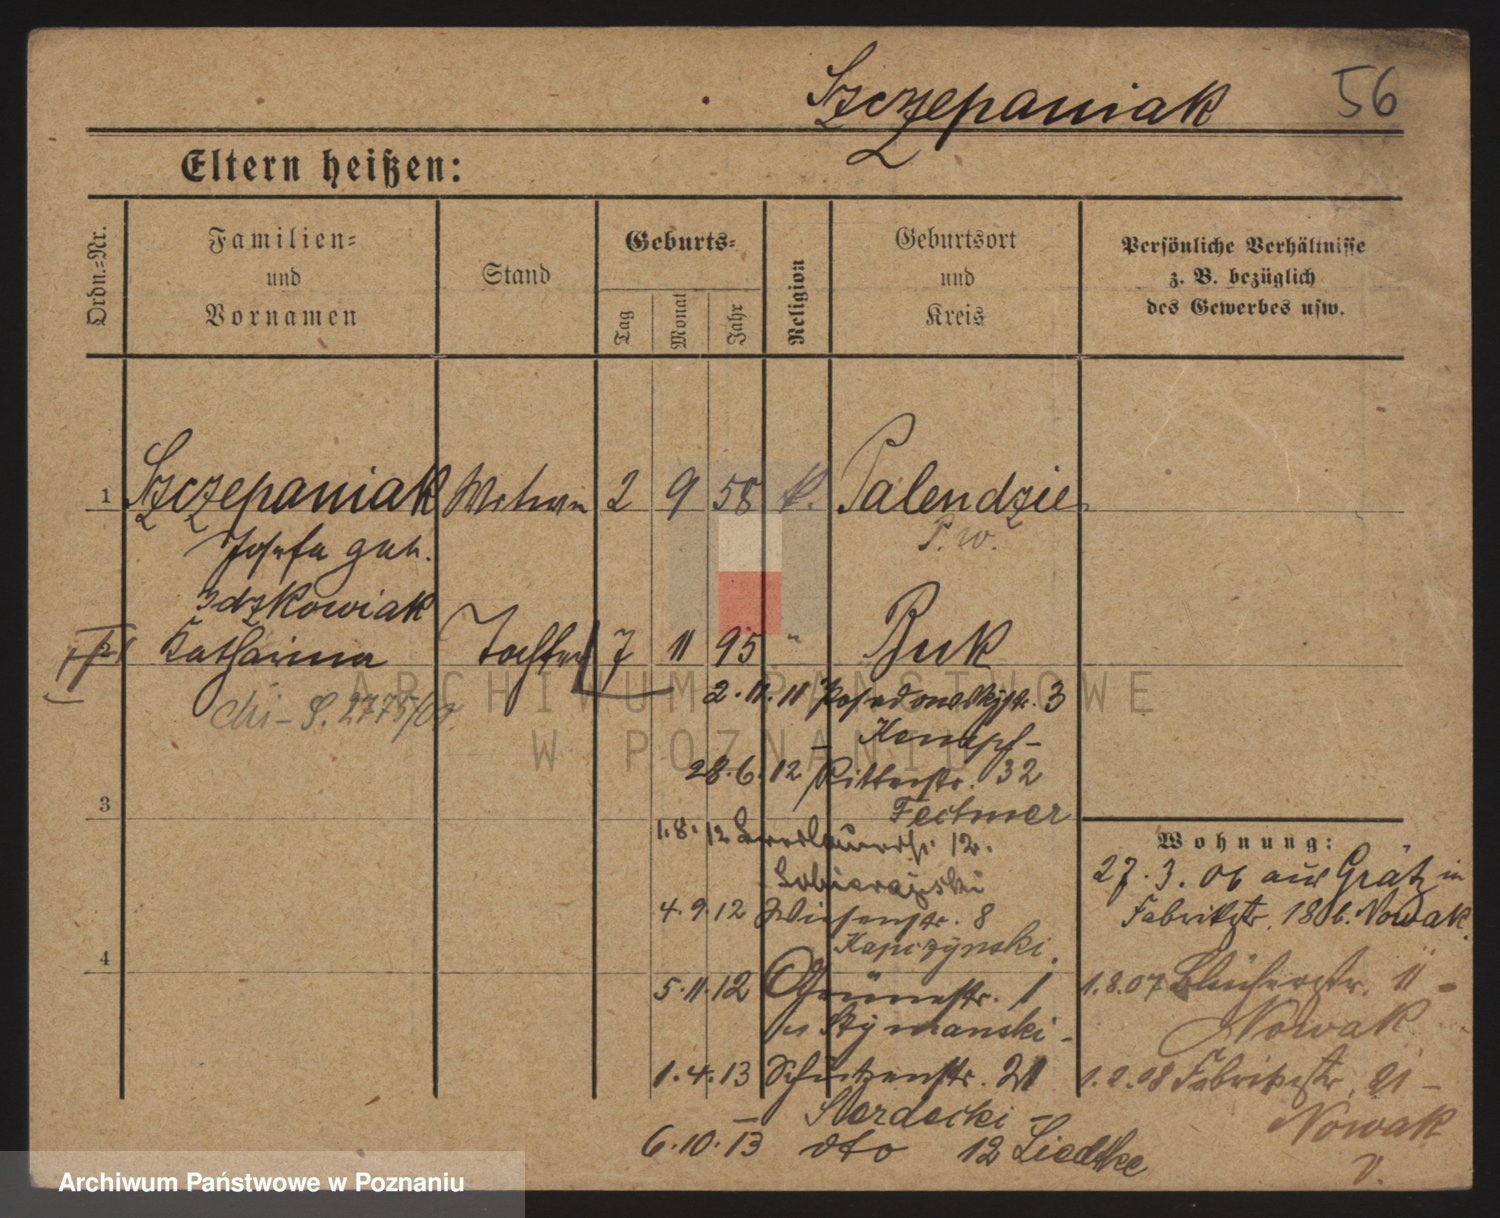 Szczepaniak 56
Eltern heißen:
Ordn.-Nr.
Familien-
und
Vornamen
Stand
Geburts-
Tag
Monat
Jahr
Religion
Geburtsort
und
Kreis
Persönliche Verhältnisse
z. B. bezüglich
des Gewerbes usw.
1 Szczepaniak 2 9 58 k. Palendzie
P. W.
Josefa geb.
Idzkowiak
Katharina Tochter 7 11 95 " Buk
2.11.11 Posadowskystr. 3
28.6.12 Ritterstr. 32
Fechner
3
1.8.12 12.
4.9.12 Wiesenstr. 8
Kapczynski
4
5.11.12 Grünestr. 1
Szymanski -
1.4.13 Schützenstr. 21
6.10.13 dto 12 Liedtke
Wohnung:
27.3.06 aus Grätz in
Fabrikstr. 18 b. Nowak
1.8.07 Blücherstr. 11 -
Nowak
1.2.08 Fabrikstr. 21 -
Nowak
ARCHIWUM PAŃSTWOWE
W POZNANIU
Archiwum Państwowe w Poznaniu